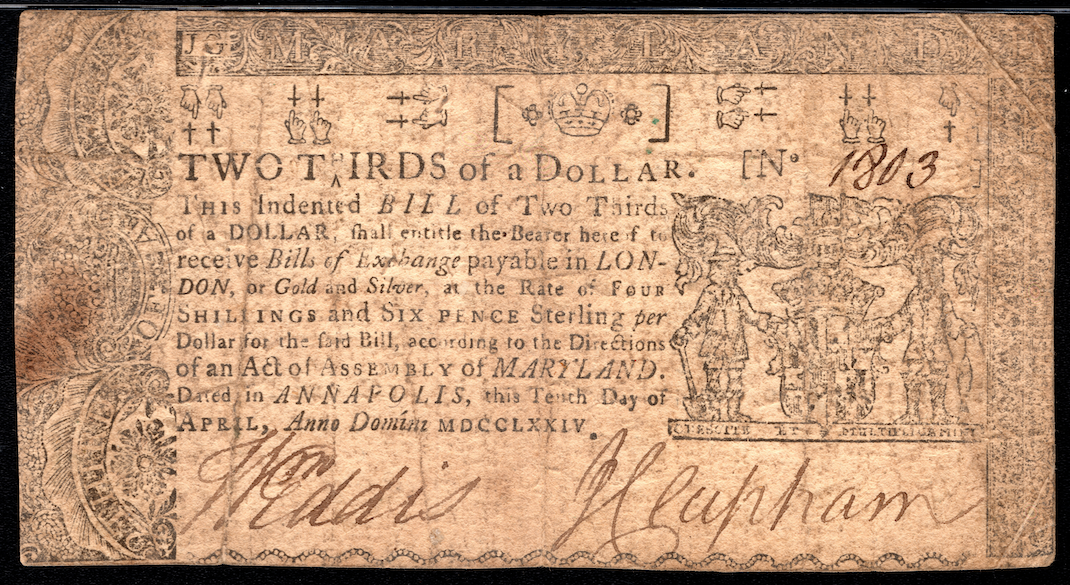 JG MARYLAND
TWO THIRDS of a DOLLAR. [No 1803]
THIS Indented BILL of Two Thirds
of a DOLLAR, ſhall entitle the Bearer hereof to
receive Bills of Exchange payable in LON-
DON, or Gold and Silver, at the Rate of FOUR
SHILLINGS and SIX PENCE Sterling per
Dollar for the ſaid Bill, according to the Directions
of an Act of ASSEMBLY of MARYLAND.
Dated in ANNAPOLIS, this Tenth Day of
APRIL, Anno Domini MDCCLXXIV.
CRESCITE ET MULTIPLICAMINI
Wm Eddis
J Clapham
OF